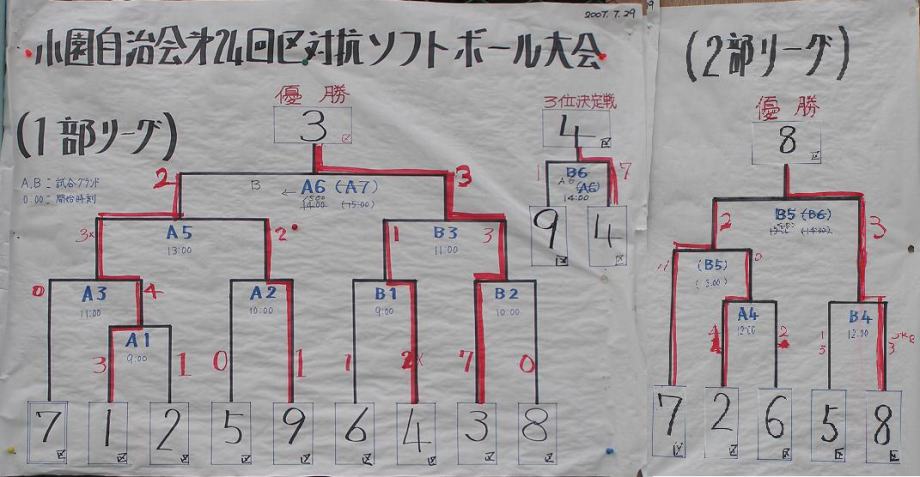 2007.7.29
小園自治会才24回区対抗ソフトボール大会
(1部リーグ)
A,B：試合グランド
0:00：開始時刻
優勝
3区
2 3
A6 (A7)
14:00 (15:00)
3x A5 2
13:00
1 B3 3
11:00
0 A3 4
11:00
A2
10:00
B1
9:00
B2
10:00
3 A1 1
9:00
0 1
1 2x
7 0
7区 1区 2区 5区 9区 6区 4区 3区 8区
3位決定戦
4区
1 B6 7
(A6)
14:00
9区 4区
(2部リーグ)
優勝
8区
2 B5 (B6) 3
(14:00)
(B5)
A4
12:00
4 2
B4
12:00
7区 2区 6区 5区 8区